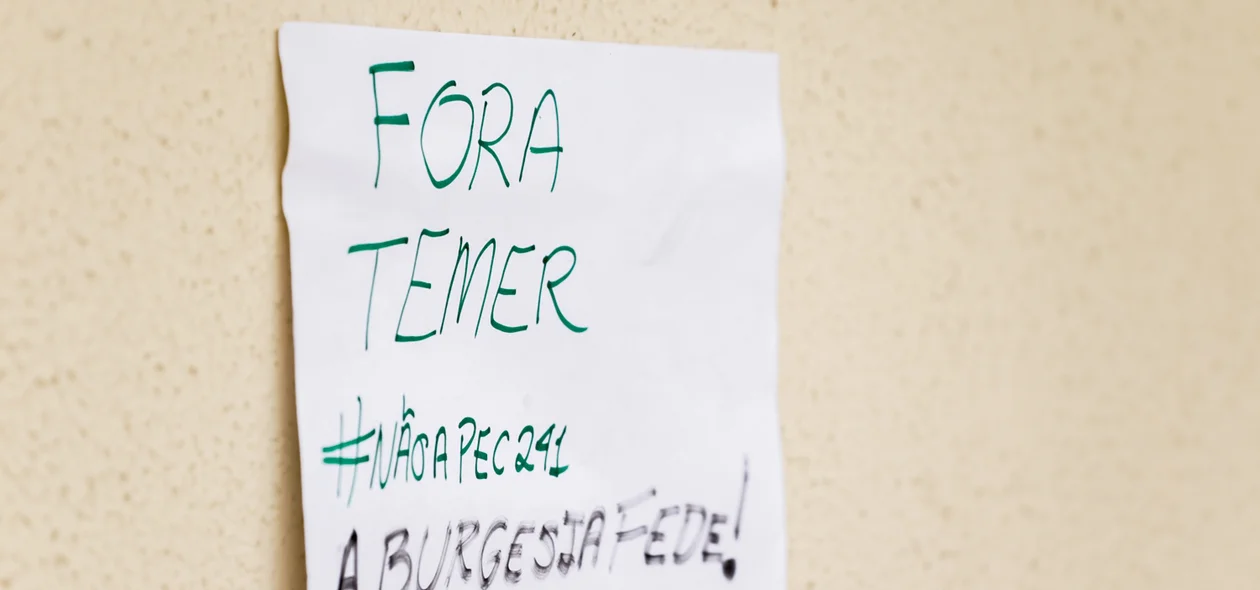 FORA
TEMER
#NÃO A PEC 241
A BURGESIA FEDE!